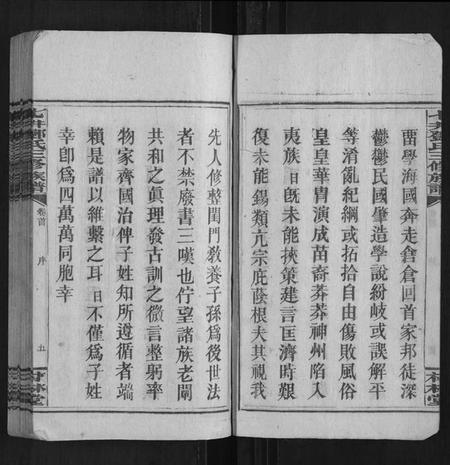 酉學海國奔走倉倉回首家邦徒深
鬱鬱民國肇造學說紛岐或誤解平
等淆亂紀綱或拾自由傷敗風俗
皇皇華冑演成苗裔莽莽神州陷入
夷族日旣未能挾策建言匡濟時艱
復未能錫類亢宗庇蔭根夫其視我
先人修整閨門敎養子孫爲後世法
者不禁廢書三嘆也佇望諸族老闡
共和之眞理發古訓之微言整躬率
物家齊國治俾子姓知所遵循者端
賴是譜以維繫之耳日不僅爲子姓
幸卽爲四萬萬同胞幸
氏三修族譜
卷首
序
五